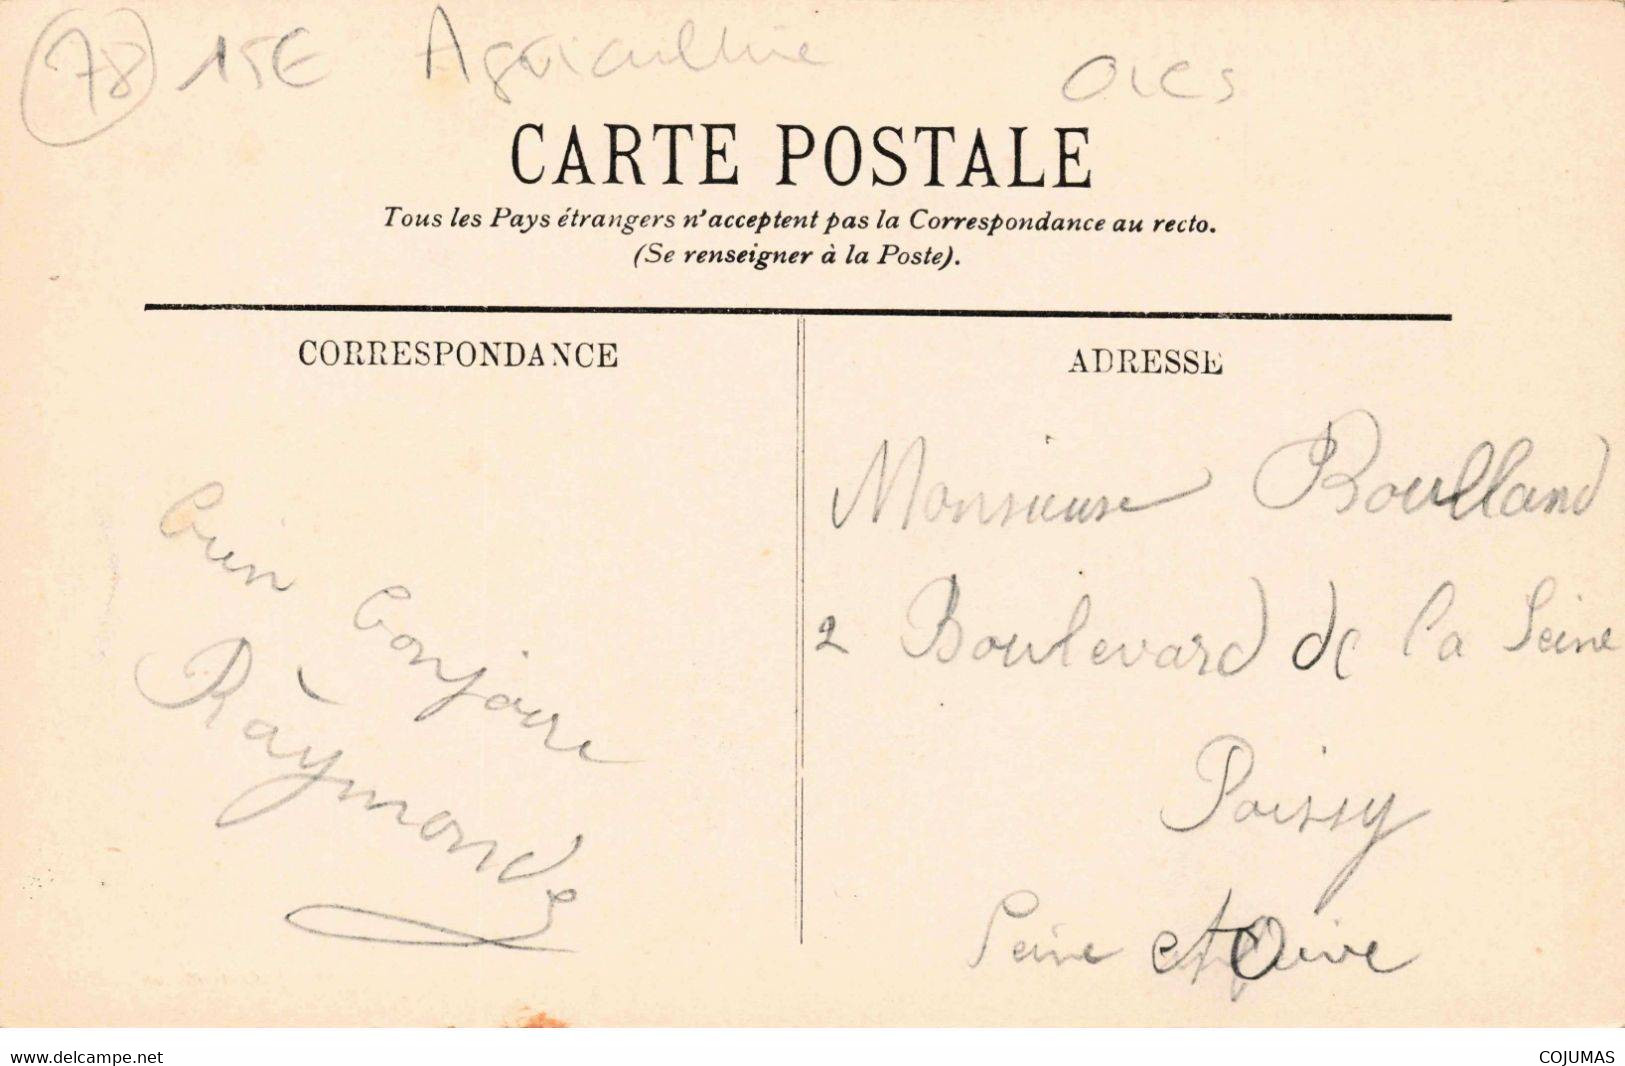 78 15€ Agriculture
CARTE POSTALE
Tous les Pays étrangers n'acceptent pas la Correspondance au recto.
(Se renseigner à la Poste).
CORRESPONDANCE
bien bonjour
Raymond
ADRESSE
Monsieur Boulland
2 Boulevard de la Seine
Poissy
Seine et Oise
www.delcampe.net
COJUMAS